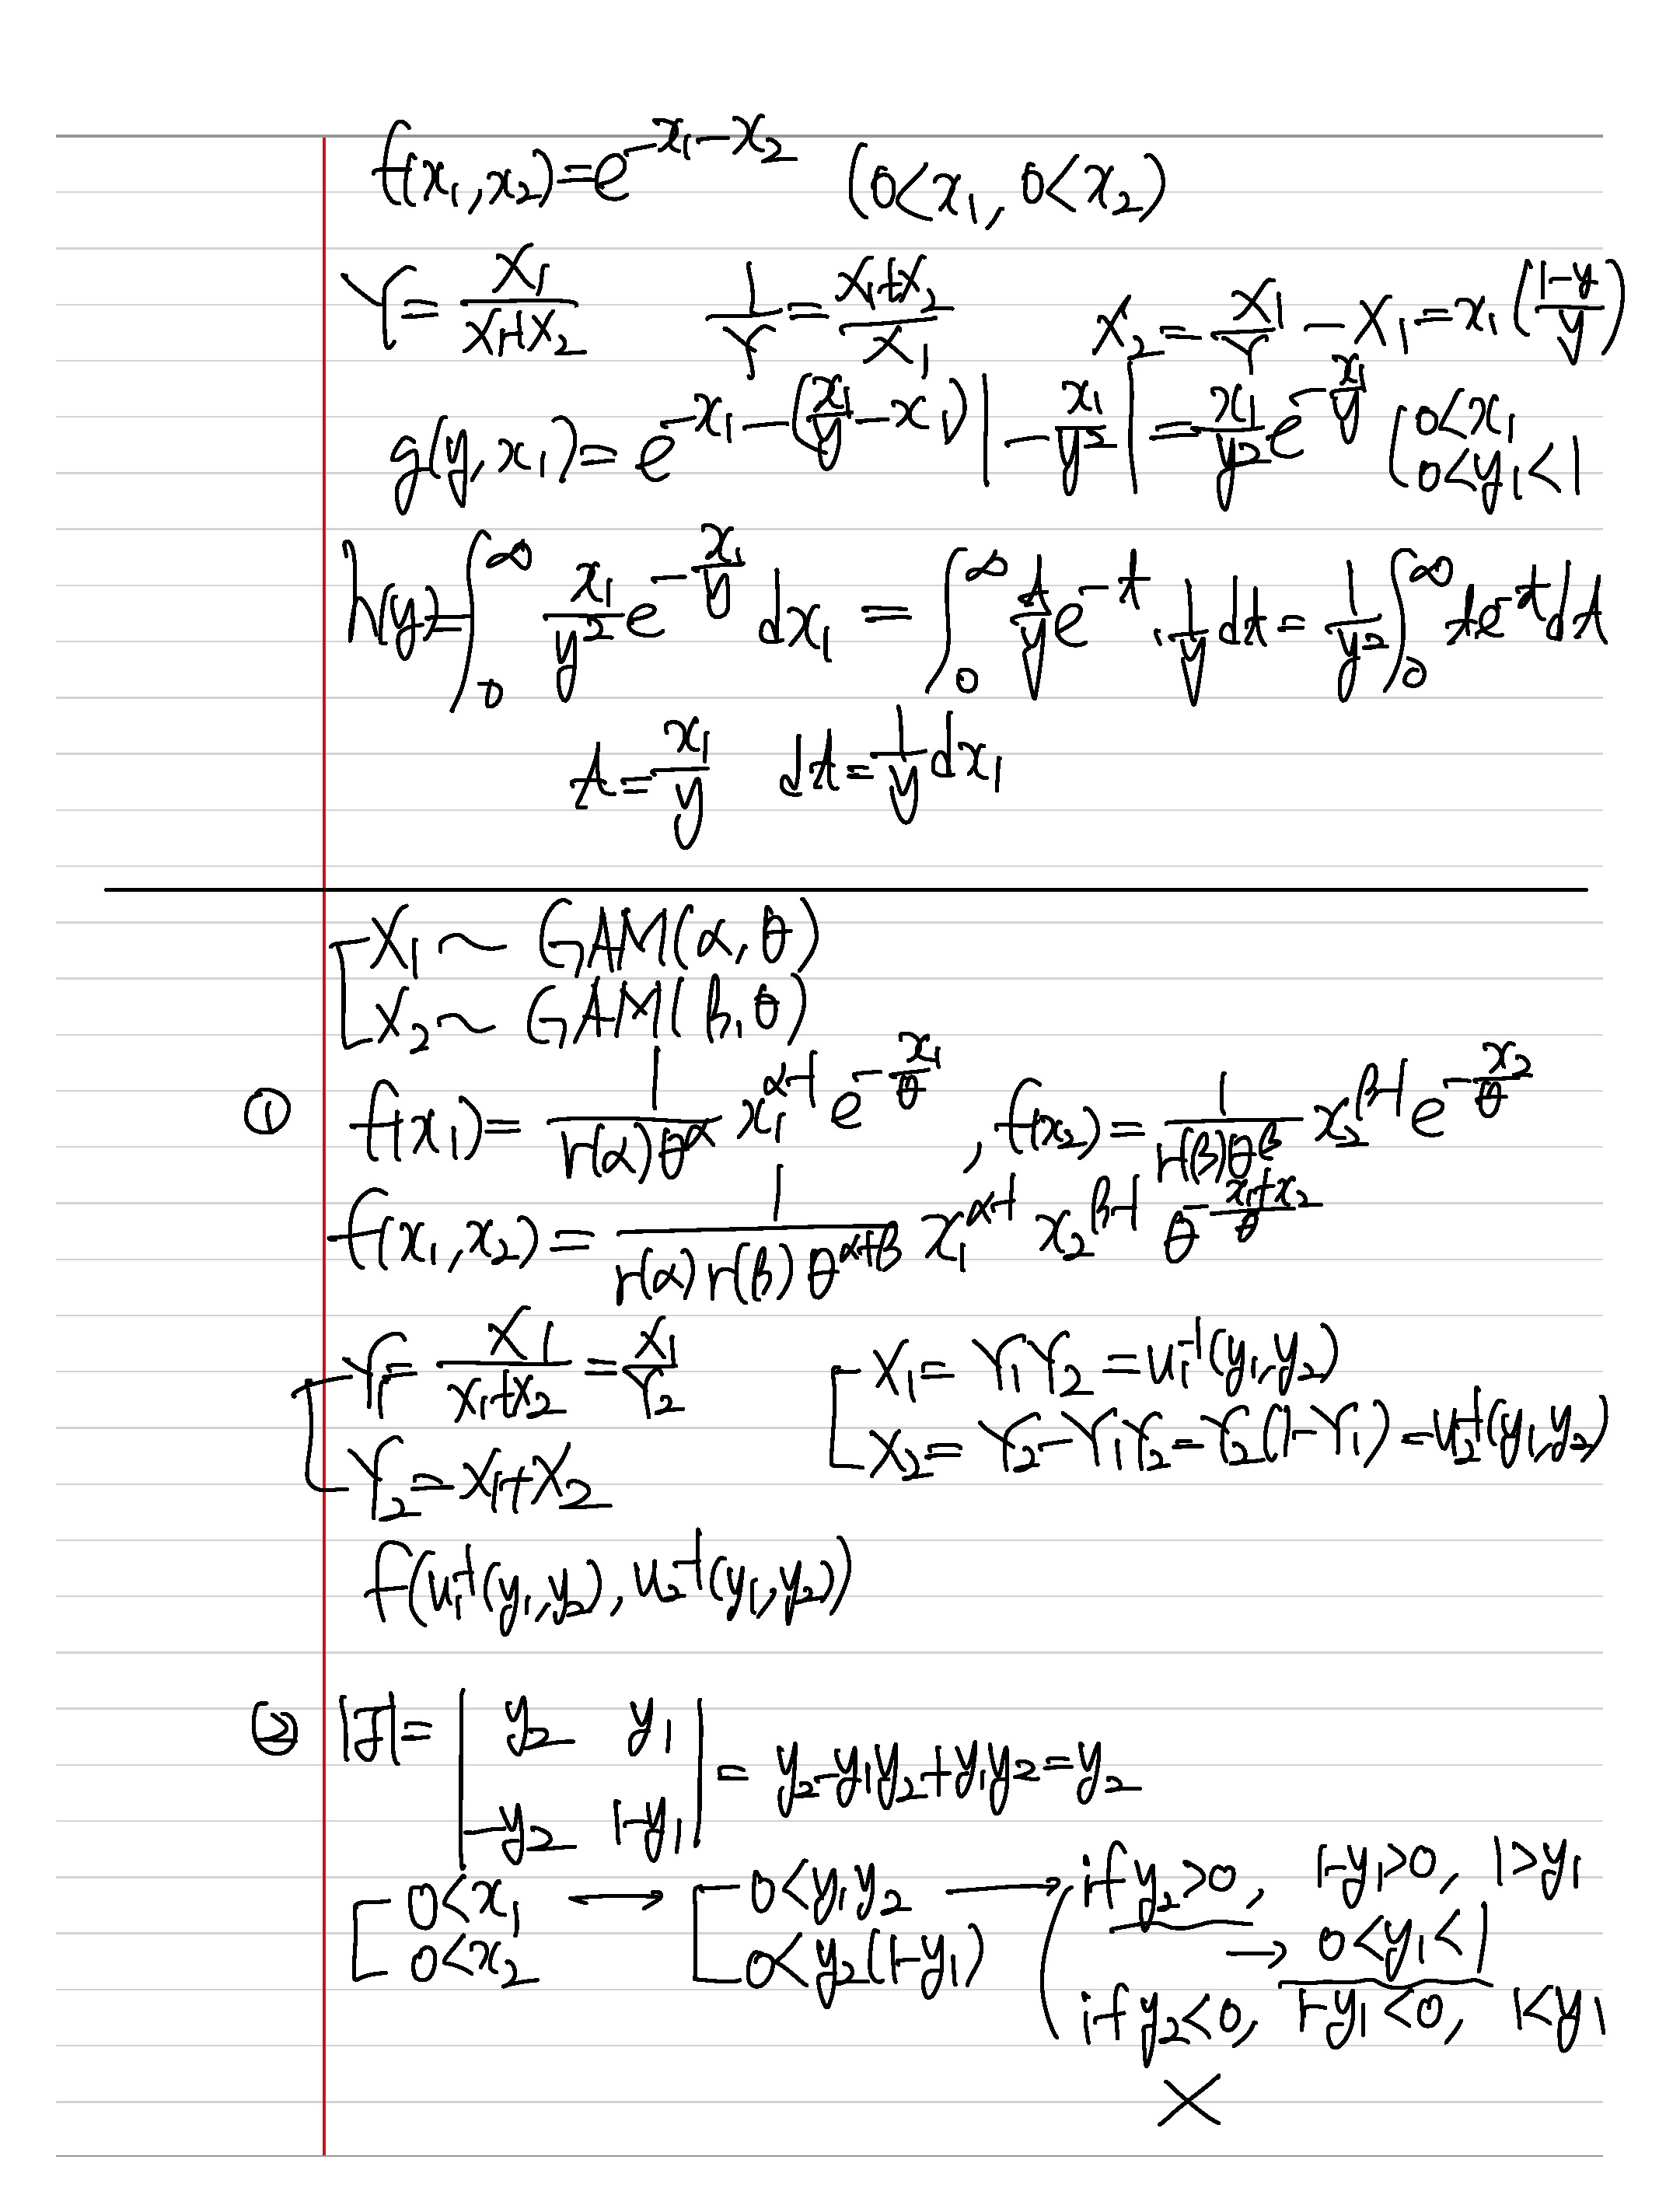 f(x₁,x₂)=e^{-x₁-x₂} (0<x₁, 0<x₂)
Y=\frac{X₁}{X₁+X₂} \frac{1}{Y}=\frac{X₁+X₂}{X₁} X₂=\frac{X₁}{Y}-X₁=x₁(\frac{1-y}{y})
g(y,x₁)=e^{-x₁-(\frac{x₁}{y}-x₁)}|-\frac{x₁}{y²}|=\frac{x₁}{y²}e^{-\frac{x₁}{y}} (0<x₁ 0<y₁<1
h(y)=∫_0^∞ \frac{x₁}{y²}e^{-\frac{x₁}{y}}dx₁ = ∫_0^∞ \frac{t}{y}e^{-t}·\frac{1}{y}dt = \frac{1}{y²}∫_0^∞ te^{-t}dt
t=\frac{x₁}{y} dt=\frac{1}{y}dx₁
X₁~GAM(α,θ)
X₂~GAM(β,θ)
① f(x₁)=\frac{1}{Γ(α)θ^α}x₁^{α-1}e^{-\frac{x₁}{θ}}, f(x₂)=\frac{1}{Γ(β)θ^β}x₂^{β-1}e^{-\frac{x₂}{θ}}
f(x₁,x₂)=\frac{1}{Γ(α)Γ(β)θ^{α+β}}x₁^{α-1}x₂^{β-1}θ^{-\frac{x₁+x₂}{θ}}
Y₁=\frac{X₁}{X₁+X₂}=\frac{X₁}{Y₂} X₁=Y₁Y₂=u₁^{-1}(y₁,y₂)
Y₂=X₁+X₂ X₂=Y₂-Y₁Y₂=Y₂(1-Y₁)=u₂^{-1}(y₁,y₂)
f(u₁^{-1}(y₁,y₂),u₂^{-1}(y₁,y₂))
② |J|=\begin{vmatrix} y₂ & y₁ \\ -y₂ & 1-y₁ \end{vmatrix}=y₂-y₁y₂+y₁y₂=y₂
0<x₁ ⟷ 0<y₁y₂ ⟶ if y₂>0, 1-y₁>0, 1>y₁
0<x₂ 0<y₂(1-y₁) → 0<y₁<1
if y₂<0, 1-y₁<0, 1<y₁
×